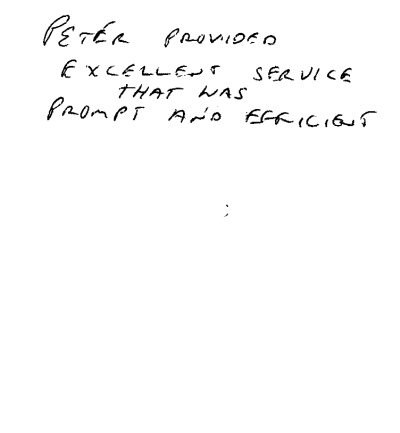 PETER PROVIDED
EXCELLENT SERVICE
THAT WAS
PROMPT AND EFFICIENT